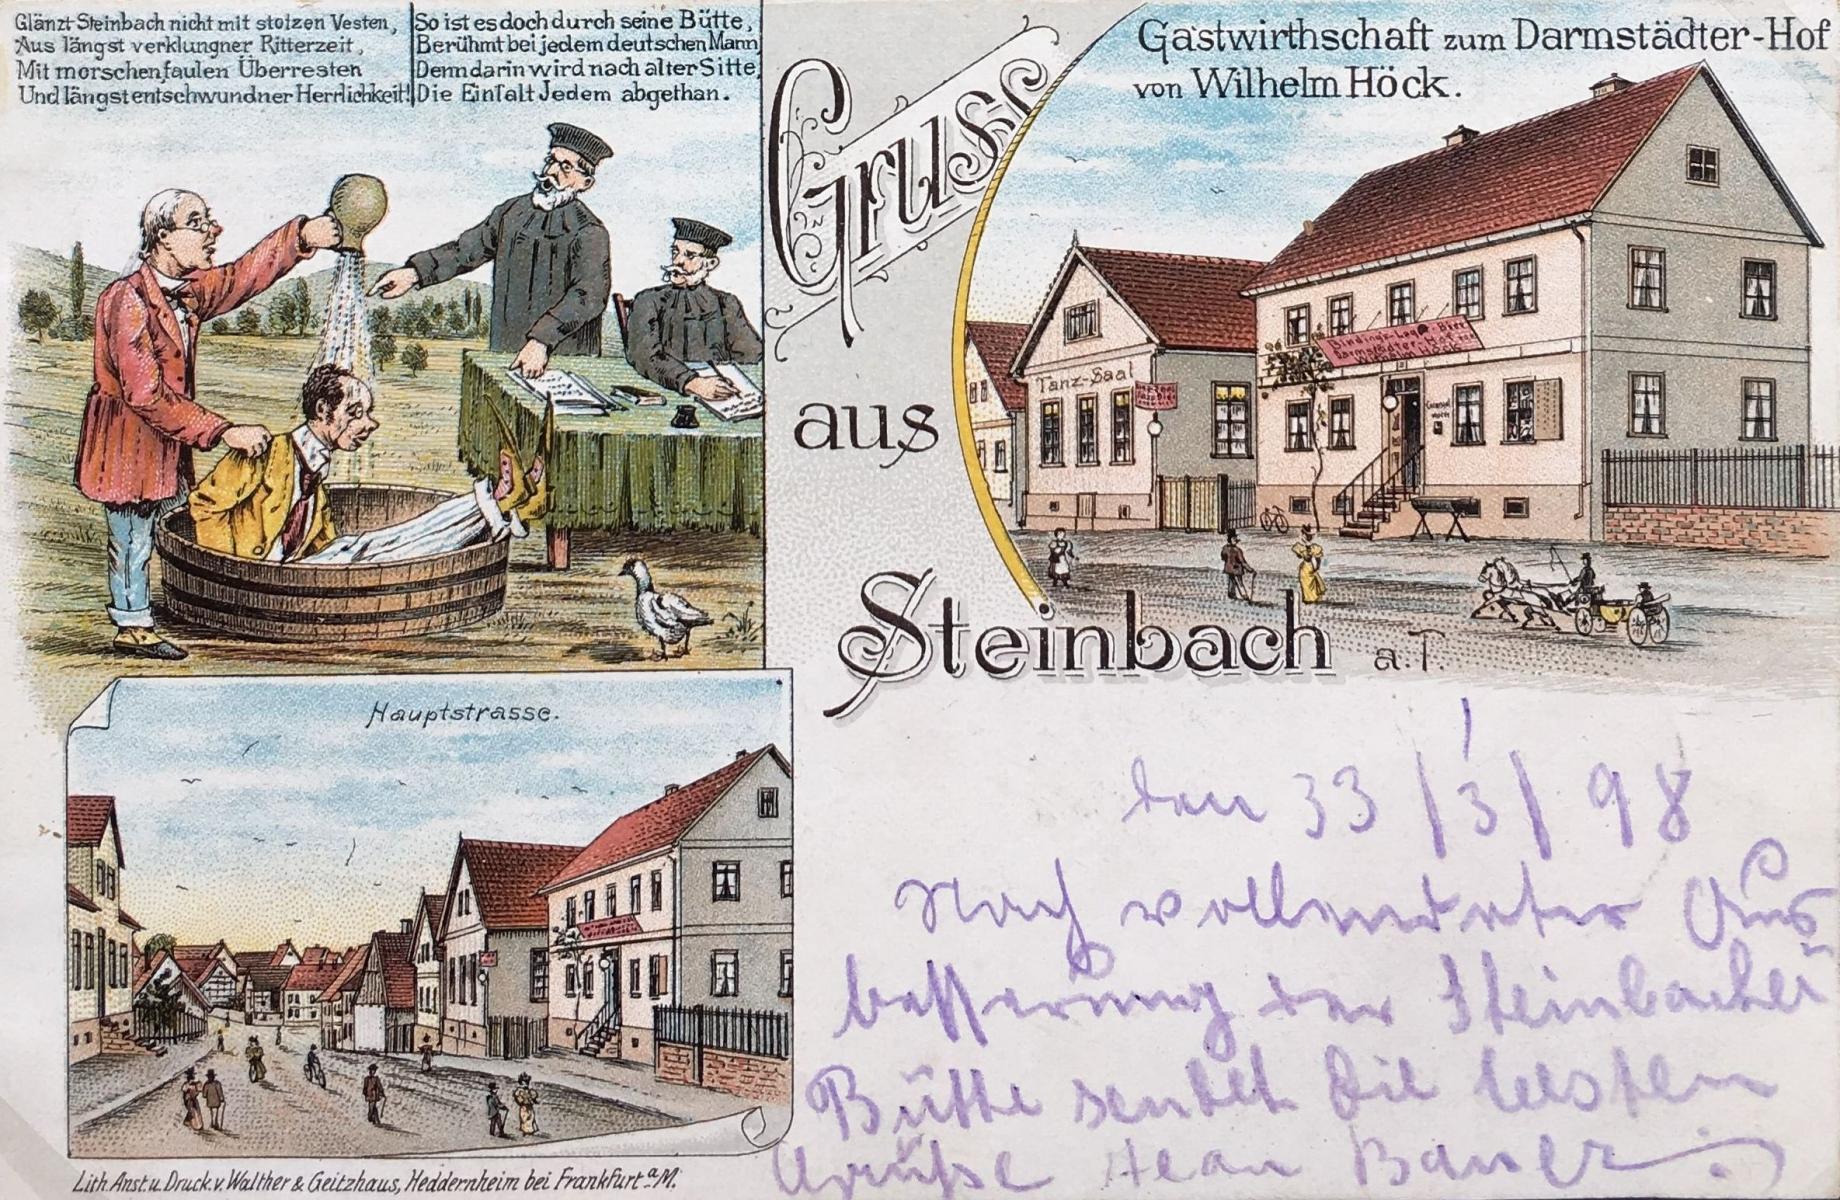 Glänzt Steinbach nicht mit stolzen Vesten,
Aus längst verklungner Ritterzeit,
Mit morschen, faulen Überresten
Und längst entschwundner Herrlichkeit!
So ist es doch durch seine Bütte,
Berühmt bei jedem deutschen Mann,
Denn darin wird nach alter Sitte,
Die Einfalt Jedem abgethan.
Gruss
aus
Steinbach a.T.
Gastwirthschaft zum Darmstädter-Hof
von Wilhelm Höck.
Tanz-Saal
Darmstädter-Hof
Hauptstrasse.
den 33/3/98
Nach vollendeter Aus
besserung der Steinbacher
Bütte sendet die besten
Grüße Jean Bauer
Lith. Anst. u. Druck v. Walther & Geitzhaus, Heddernheim bei Frankfurt a/M.